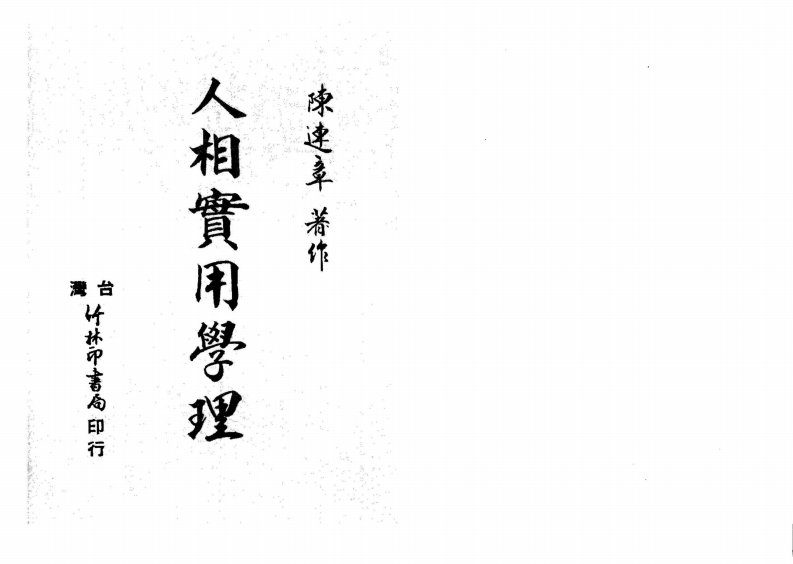 陳連章 著作
人相實用學理
台灣
竹林印書局 印行